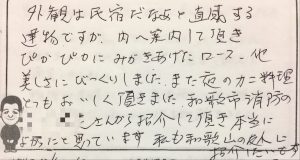 外観は民宿だなぁと直感する
建物ですが、内へ案内して頂き
ぴかぴかにみがきあげたロース、他
美しさにびっくりしました。また夜のカニ料理
とてもおいしく頂きました。和歌山市消防の
さんから紹介して頂き本当に
よかったと思っています 私も和歌山の友人に
紹介したいです